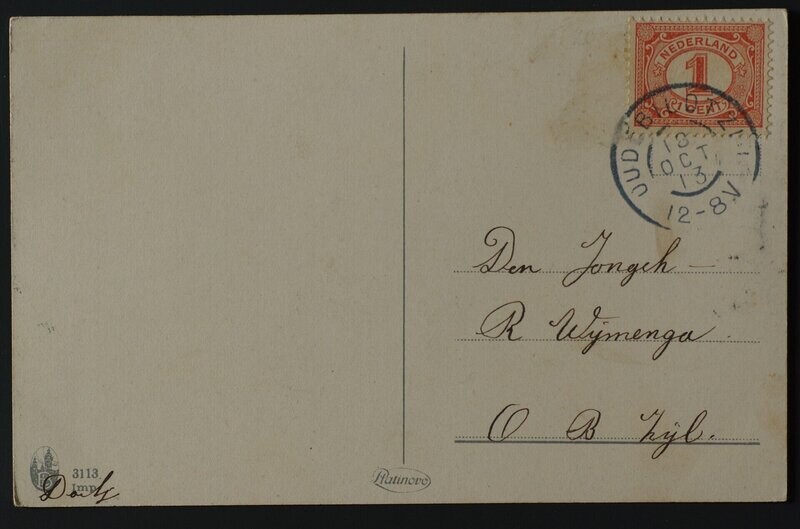 NEDERLAND
1
1 CENT
OUDEBILDTZIJL
13
OCT
13
12-8V
Den Jongeh
R Wijmenga
O B Zijl.
3113
Imp.
Platinovo